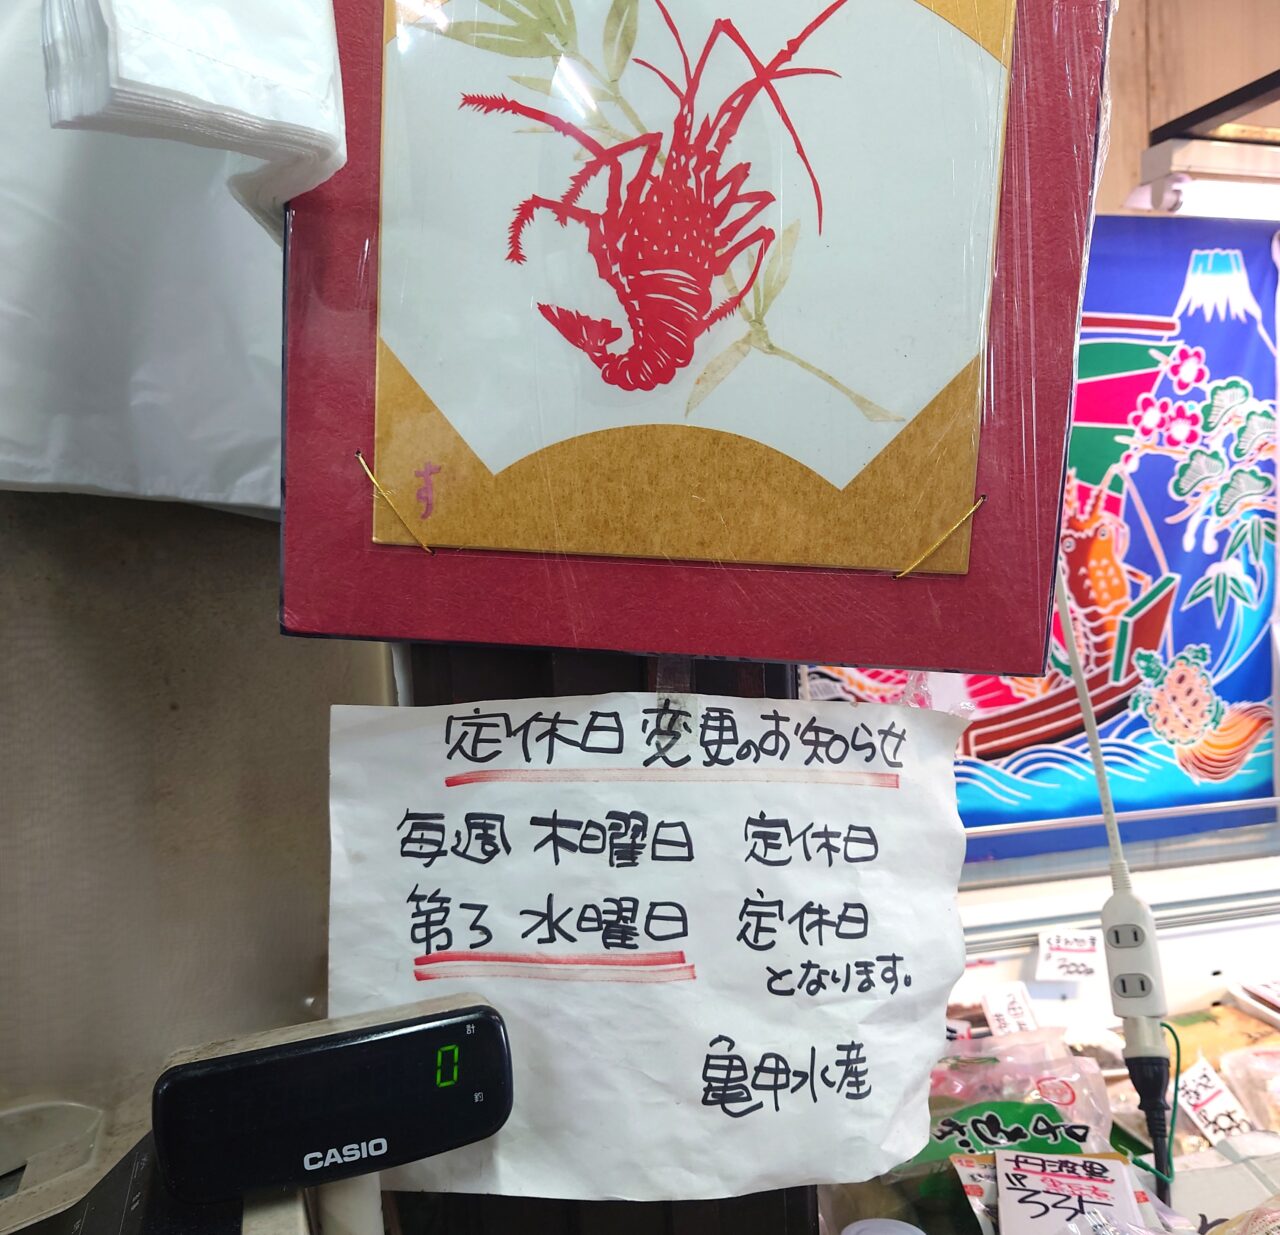 す
定休日変更のお知らせ
毎週 木曜日 定休日
第3 水曜日 定休日
となります。
亀甲水産
計
0
釣
CASIO
300
丹波黒